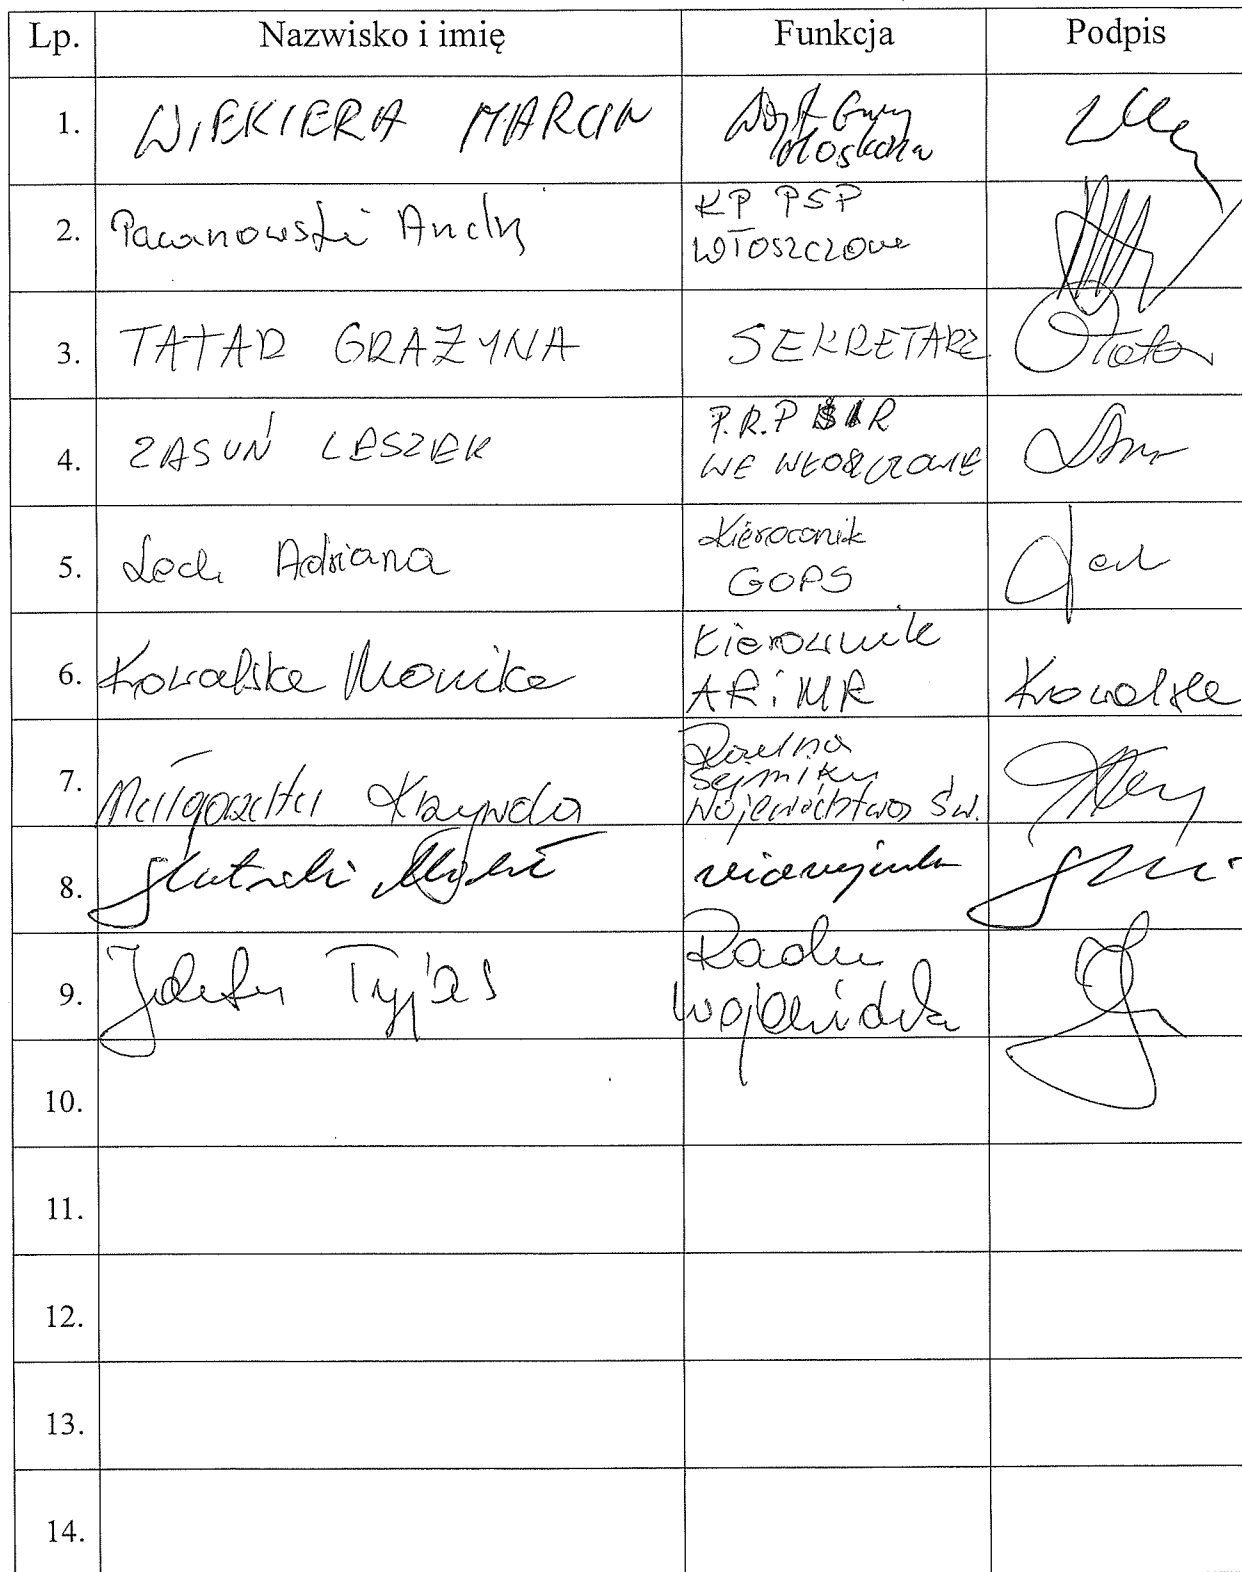 Lp. Nazwisko i imię Funkcja Podpis
1. WIEKIERA MARCIN Wójt Gminy
Moskorzew
2. Pacanowski Andrzej KP PSP
WŁOSZCZOWA
3. TATAR GRAŻYNA SEKRETARZ
4. ZASUŃ LESZEK P.R.P
WE WŁOSZCZOWIE
5. Lech Adriana Kierownik
GOPS
6. Kowalska Monika Kierownik
ARiMR Kowalska
7. Małgorzata Radna
Sejmiku
Województwa Św.
8.
9. Jolanta Tyjas Radna
Wojewódzka
10.
11.
12.
13.
14.